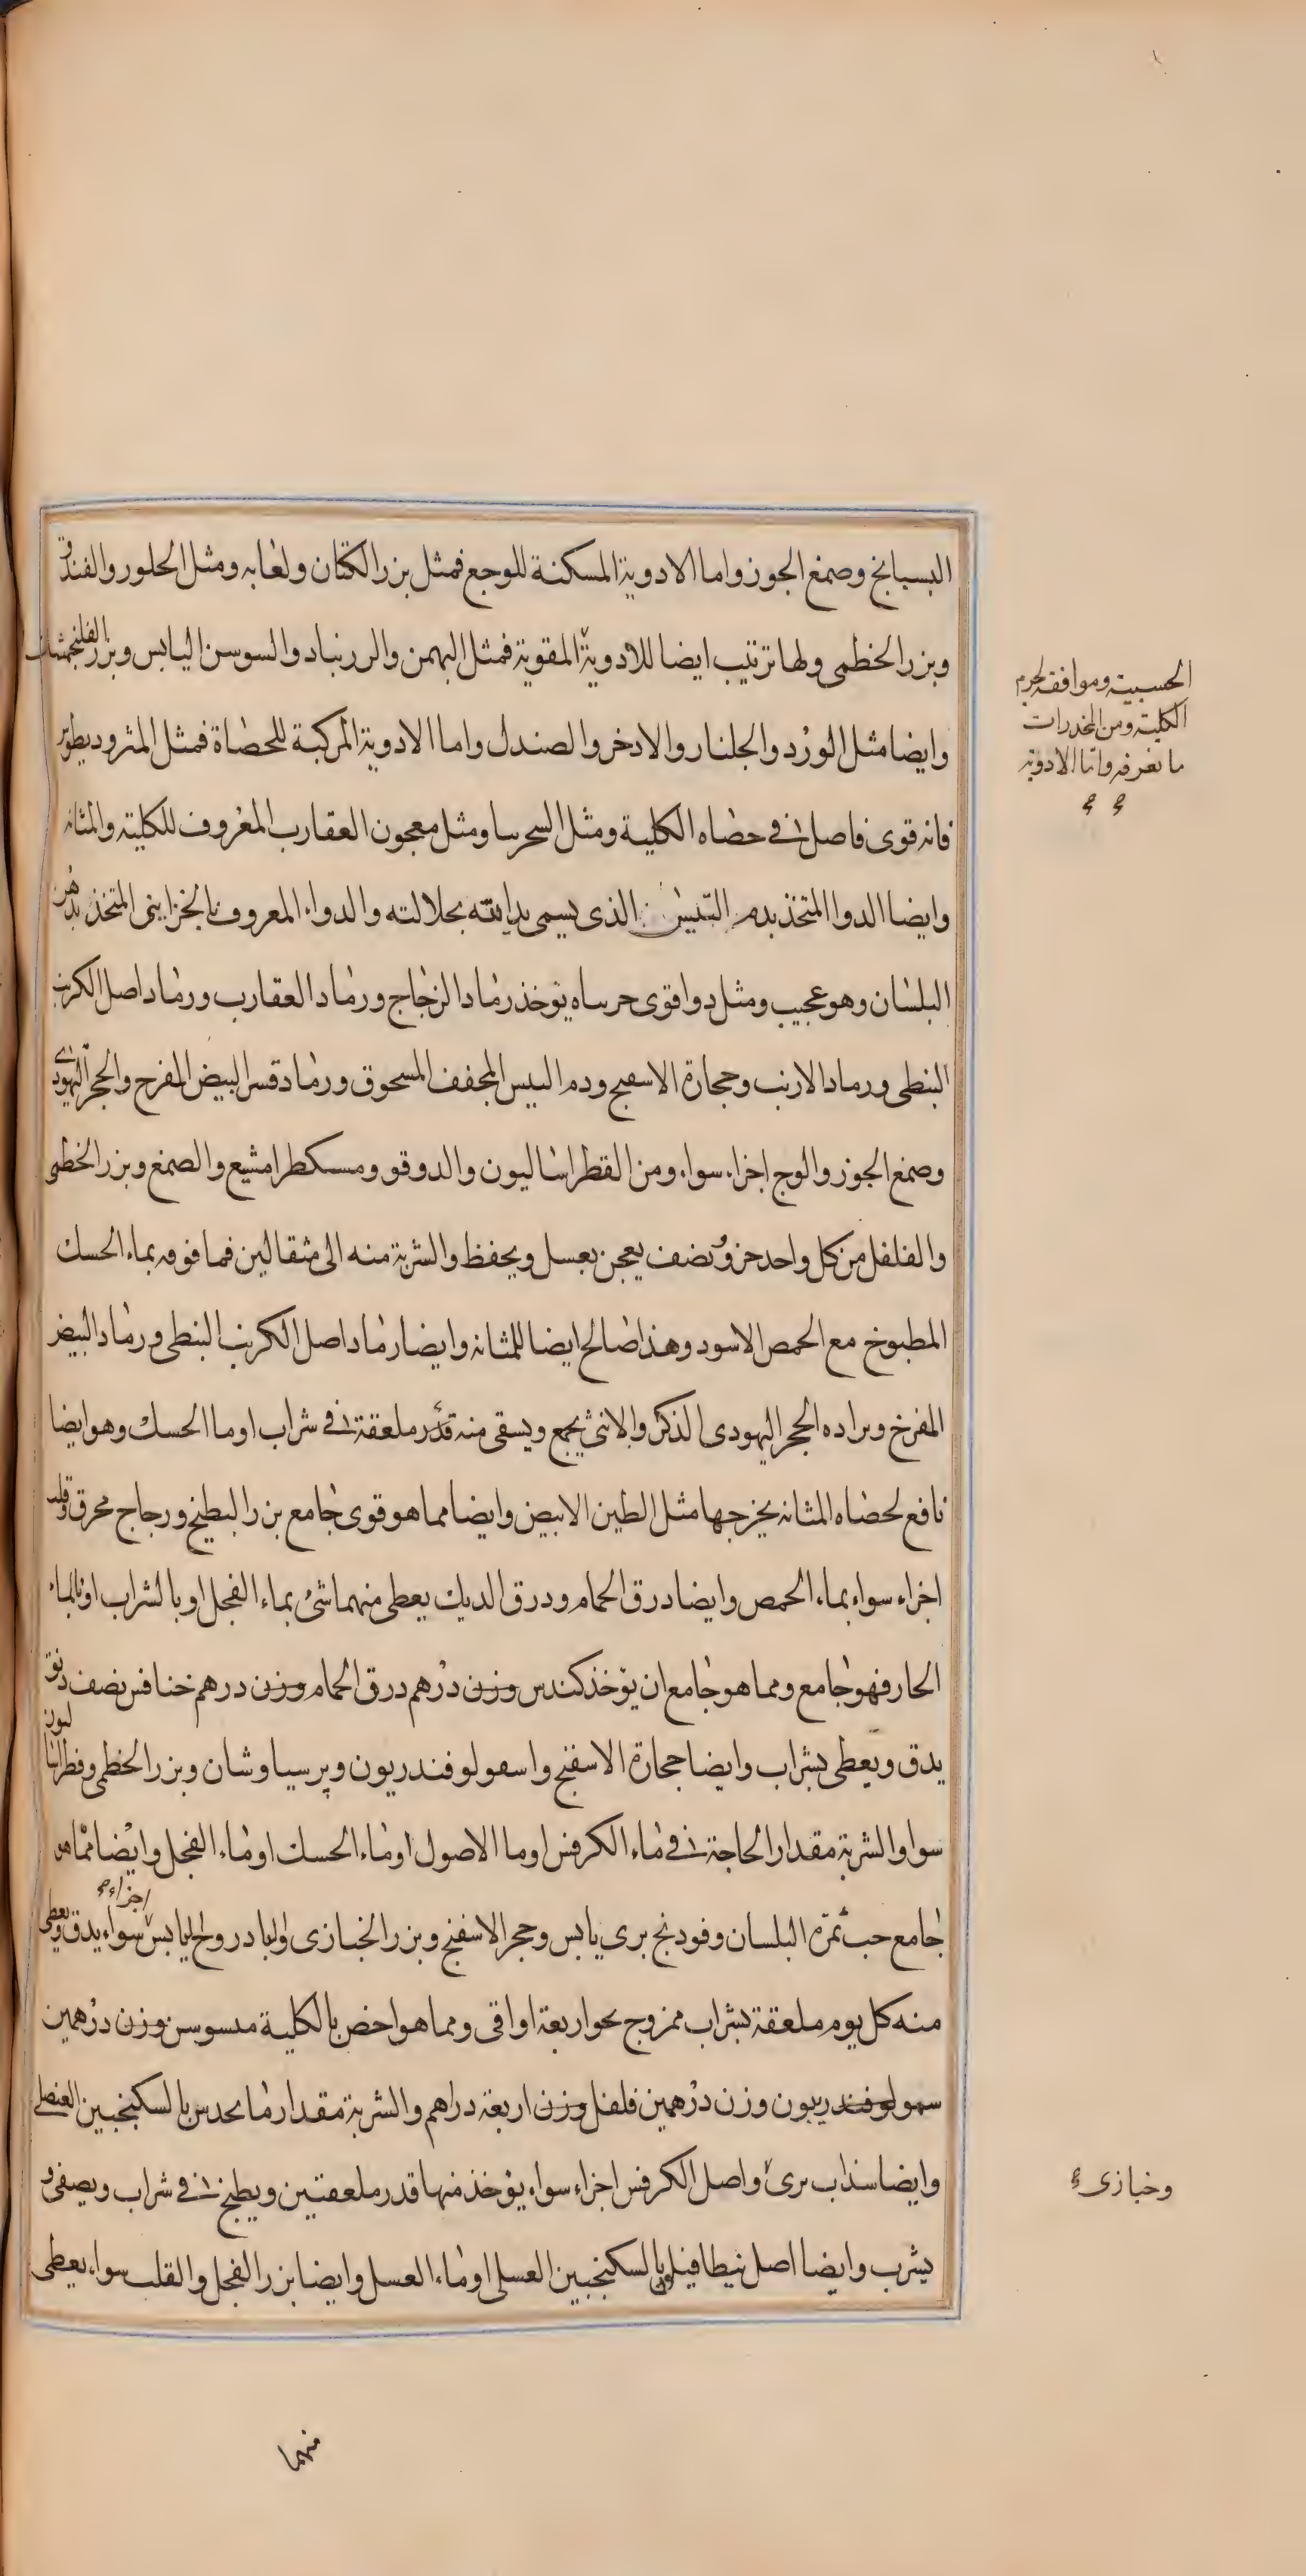 البسبانخ وصمغ الجوز واما الادوية المسكنة للوجع فمثل بزر الكتان ولعابه ومثل الجلوز والفندق
وبزر الخطمى ولها ترتيب ايضا للادوية المقوية فمثل البهمن والزرنباد والسوسن اليابس وبزر الفلنجمشك
وايضا مثل الورد والجلنار والادخر والصندل واما الادوية المركبة للحصاة فمثل المثروديطوس
فانه قوى فاصل فى حصاه الكلية ومثل السحرسا ومثل معجون العقارب المعروف للكلية والمثانه
وايضا الدوا المتخذ بدم التيس الذى يسمى يد الله بجلالته والدواء المعروف بالخزاينى المتخذ بدهن
البلسان وهو عجيب ومثل دوا قوى حرساه يوخذ رماد الزجاج ورماد العقارب ورماد اصل الكرنب
النبطى ورماد الارنب وحجارة الاسفنج ودم التيس المجفف المسحوق ورماد قسر البيض المفرخ والحجر اليهودى
وصمغ الجوز والوج اجزاء سواء ومن الفطراساليون والدوقو ومسكطرامشيع والصمغ وبزر الخطمى
والفلفل من كل واحد جزو نصف يعجن بعسل ويحفظ والشربة منه الى مثقالين فما فوقه بماء الحسك
المطبوخ مع الحمص الاسود وهذا صالح ايضا للمثانه وايضا رماد اصل الكرنب النبطى ورماد البيض
المفرخ وبراده الحجر اليهودى الذكر والانثى يجمع ويسقى منه قدر ملعقة فى شراب او ما الحسك وهو ايضا
نافع لحصاه المثانه يخرجها مثل الطين الابيض وايضا مما هو قوى جامع بزر البطيخ وزجاج محرق وقلت
اجزاء سواء بماء الحمص وايضا درق الحمام ودرق الديك يعطى منهما شئ بماء الفجل او بالشراب او بالماء
الحار فهو جامع ومما هو جامع ان يوخذ كندس وزن درهم درق الحمام وزن درهم خنافس نصف دنق
يدق ويعطى بشراب وايضا حجارة الاسفنج واسقولوفندريون وپرسياوشان وبزر الخطمى وفطراساليون
سوا والشربة مقدار الحاجة فى ماء الكرفس او ما الاصول او ماء الحسك او ماء الفجل وايضا مما هو
جامع حب ثمرة البلسان وفودنج برى يابس وحجر الاسفنج وبزر الخبازى والبادروج اليابس اجزاء سواء يدق ويعطى
منه كل يوم ملعقة بشراب ممزوج نحو اربعة اواقى ومما هو اخص بالكلية مسوسن وزن درهمين
سمولوفندريون وزن درهمين فلفل وزن اربعة دراهم والشربة مقدار ما يحدس بالسكنجبين العنصلى
وايضا سذاب برى واصل الكرفس اجزاء سواء يوخذ منها قدر ملعقتين ويطبخ فى شراب ويصفى و
يشرب وايضا اصل نيطافيلون بالسكنجبين العسلى او ماء العسل وايضا بزر الفجل والقلت سواء يعطى
منهما
الحسبية وموافقه لجرم
الكلية ومن المخدرات
ما تعرفه واما الادوية
وخبازى